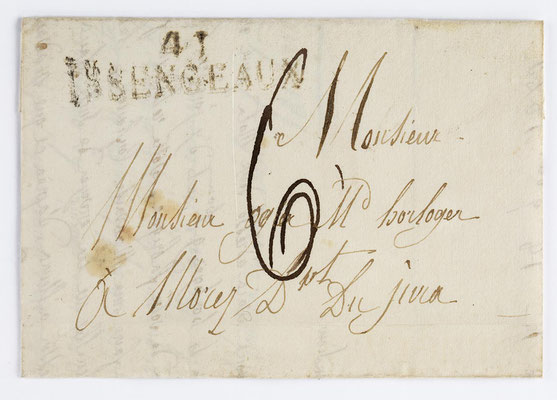 41
ISSENGEAUX
6
a Monsieur
Monsieur Md horloger
a Morez Dept Du jura